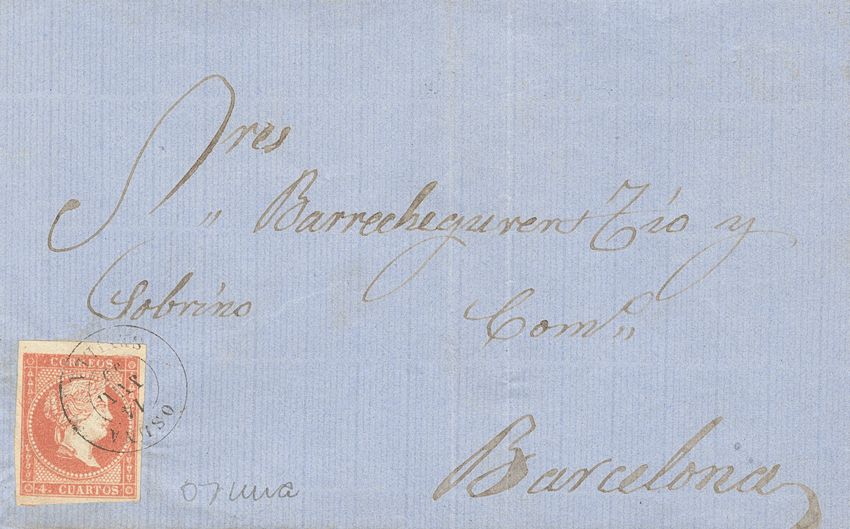 Sres
" Barrecheguren Tío y
Sobrino Com.ª "
Barcelona
CORREOS
4. CUARTOS
OSUNA